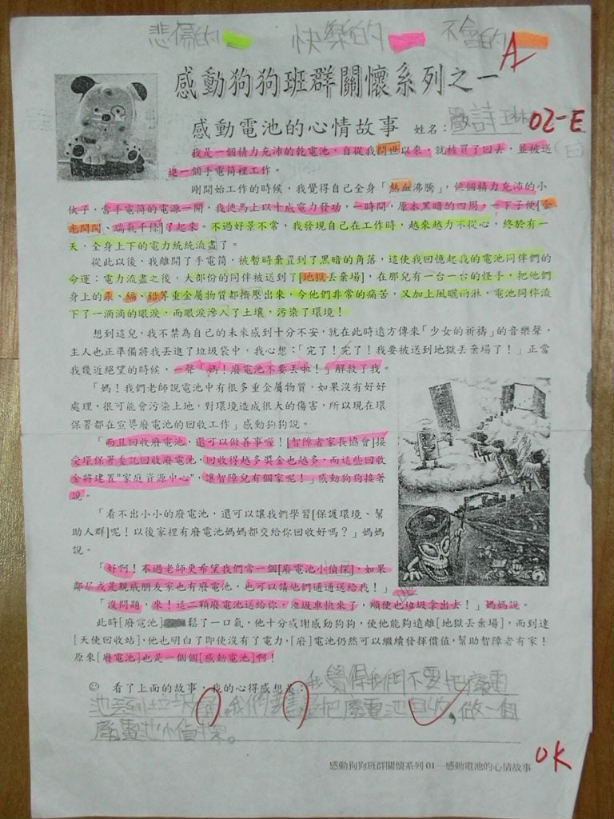 悲傷的 快樂的 不會的
A
感動狗狗班群關懷系列之一
感動電池的心情故事 姓名： 詩 02-E
我是一個精力充沛的乾電池，自從我問世以來，就被買了回去，並被送
進一個手電筒裡工作。
剛開始工作的時候，我覺得自己全身「熱血沸騰」，像個精力充沛的小
伙子，當手電筒的電源一開，我便馬上以十成電力發動，一時間，原本黑暗的四周，一下子便[金
光閃閃、瑞氣千條]了起來。不過好景不常，我發現自己在工作時，越來越力不從心，終於有一
天，全身上下的電力統統流盡了。
從此以後，我離開了手電筒，被暫時棄置到了黑暗的角落，這使我回憶起我的電池同伴們的
命運：電力流盡之後，大部份的同伴被送到了[地獄丟棄場]，在那兒有一台一台的怪手，把他們
身上的汞、鎘、鉛等重金屬物質都擠壓出來，令他們非常的痛苦，又加上風曬雨淋，電池同伴流
下了一滴滴的眼淚，而眼淚滲入了土壤，污染了環境！
想到這兒，我不禁為自己的未來感到十分不安，就在此時遠方傳來「少女的祈禱」的音樂聲，
主人也正準備將我丟進了垃圾袋中，我心想：「完了！完了！我要被送到地獄丟棄場了！」正當
我幾近絕望的時候，一聲「媽！廢電池不要丟啦！」解救了我。
「媽！我們老師說電池中有很多重金屬物質，如果沒有好好
處理，很可能會污染土地，對環境造成很大的傷害，所以現在環
保署都在宣導廢電池的回收工作」感動狗狗說。
「而且回收廢電池，還可以做善事喔！[智障者家長協會]接
受環保署委託回收廢電池，回收得越多獎金也越多，而這些回收
金將建置"家庭資源中心"，讓智障兒有個家呢！」感動狗狗接著
說。
「看不出小小的廢電池，還可以讓我們學習[保護環境、幫
助人群]呢！以後家裡有廢電池媽媽都交給你回收好嗎？」媽媽
說。
「好啊！不過老師更希望我們當一個[廢電池小偵探]，如果
鄰居或是親戚朋友家也有廢電池，也可以請他們通通送給我！」
「沒問題，來！這二顆廢電池送給你，垃圾車快來了，順便也垃圾拿出去！」媽媽說。
此時[廢電池]鬆了一口氣，他十分感謝感動狗狗，使他能夠遠離[地獄丟棄場]，而到達
[天使回收站]，他也明白了即使沒有了電力，[廢]電池仍然可以繼續發揮價值，幫助智障者有家！
原來[廢電池]也是一個個[感動電池]啊！
☺ 看了上面的故事，我的心得感想是：我覺得我們不要把廢電
池丟到垃圾 我們 把廢電池回收，做一個
廢電池小偵探。
感動狗狗班群關懷系列 01—感動電池的心情故事
OK